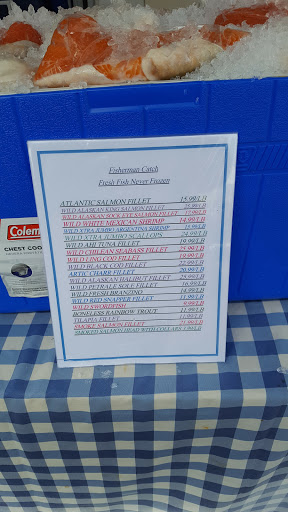 Fisherman Catch
Fresh Fish Never Frozen
ATLANTIC SALMON FILLET 15.99/LB
WILD ALASKAN KING SALMON FILLET /LB
WILD ALASKAN SOCK EYE SALMON FILLET 17.99/LB
WILD WHITE MEXICAN SHRIMP 14.99/LB
WILD XTRA JUMBO ARGENTINA SHRIMP 15.99/LB
WILD XTRA JUMBO SCALLOPS 24.99/LB
WILD AHI TUNA FILLET 19.99/LB
WILD CHILEAN SEABASS FILLET 29.99/LB
WILD LING COD FILLET 19.99/LB
WILD BLACK COD FILLET 27.99/LB
ARTIC CHARR FILLET 20.99/LB
WILD ALASKAN HALIBUT FILLET 25.99/LB
WILD PETRALE SOLE FILLET 16.99/LB
WILD FRESH BRANZINO 14.99/LB
WILD RED SNAPPER FILLET 11.99/LB
WILD SWORDFISH 9.99/LB
BONELESS RAINBOW TROUT 11.99/LB
TILAPIA FILLET 11.99/LB
SMOKE SALMON FILLET 21.99/LB
SMOKED SALMON HEAD WITH COLLARS 7.99/LB
Coleman
CHEST COO